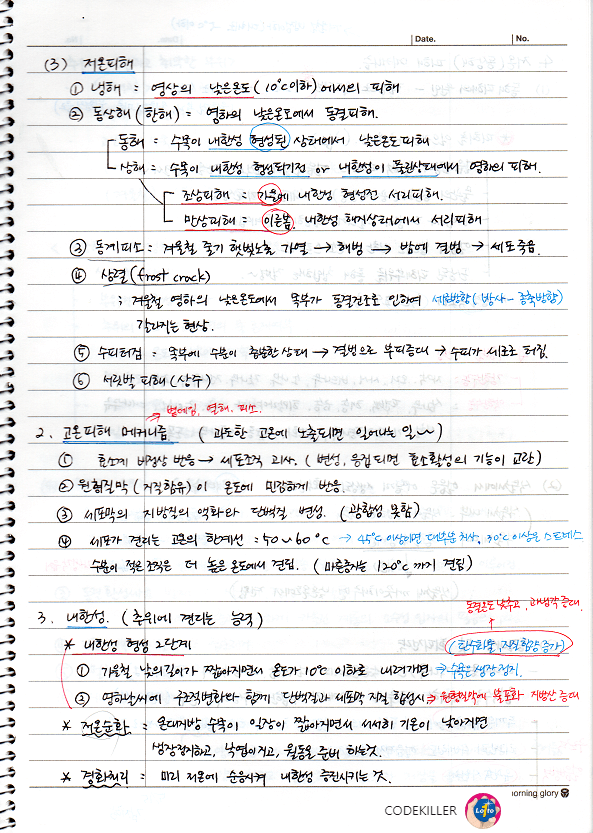 Date. No.
(3) 저온피해
① 냉해 = 영상의 낮은온도(10℃이하)에서의 피해
② 동상해(한해) = 영하의 낮은온도에서 동결피해.
동해 = 수목이 내한성 형성된 상태에서 낮은온도피해
상해 = 수목이 내한성 형성되기전 or 내한성이 풀린상태에서 영하의 피해.
조상피해 = 가을에 내한성 형성전 서리피해.
만상피해 = 이른봄, 내한성 해제상태에서 서리피해
③ 동계피소 = 겨울철 줄기 햇빛노출 가열 → 해빙 → 밤에 결빙 → 세포죽음
④ 상렬(frost crack)
; 겨울철 영하의 낮은온도에서 목부가 동결건조로 인하여 세로방향(방사-종축방향)
갈라지는 현상.
⑤ 수피터짐 = 목부에 수분이 충분한 상태 → 결빙으로 부피증대 → 수피가 세로로 터짐.
⑥ 서릿발 피해(상주)
→ 볕데임, 열해. 피소.
2. 고온피해 메커니즘. (과도한 고온에 노출되면 일어나는 일~)
① 효소계 비정상 반응 → 세포조직 괴사. (변성, 응집되면 효소활성의 기능이 교란)
② 원형질막(지질함유)이 온도에 민감하게 반응.
③ 세포막의 지방질의 액화와 단백질 변성. (광합성 못함)
④ 세포가 견디는 고온의 한계선 = 50~60℃ → 45℃이상이면 대부분 치사, 30℃이상은 스트레스
수분이 적은 조직은 더 높은 온도에서 견딤. (마른종자는 120℃까지 견딤)
동결온도 낮추고, 과냉각 증대.
3. 내한성. (추위에 견디는 능력)
* 내한성 형성 2단계 (탄수화물, 지질함량증가)
① 가을철 낮의길이가 짧아지면서 온도가 10℃ 이하로 내려가면 → 수목은 생장정지.
② 영하날씨에 구조적변화와 함께 단백질과 세포막 지질 합성시 → 원형질막에 불포화 지방산 증대
* 저온순화 = 온대지방 수목이 일장이 짧아지면서 서서히 기온이 낮아지면
생장정지하고, 낙엽이지고, 월동을 준비 하는것.
* 경화처리 = 미리 저온에 순응시켜 내한성 증진시키는 것.
morning glory
CODEKILLER
Lotto